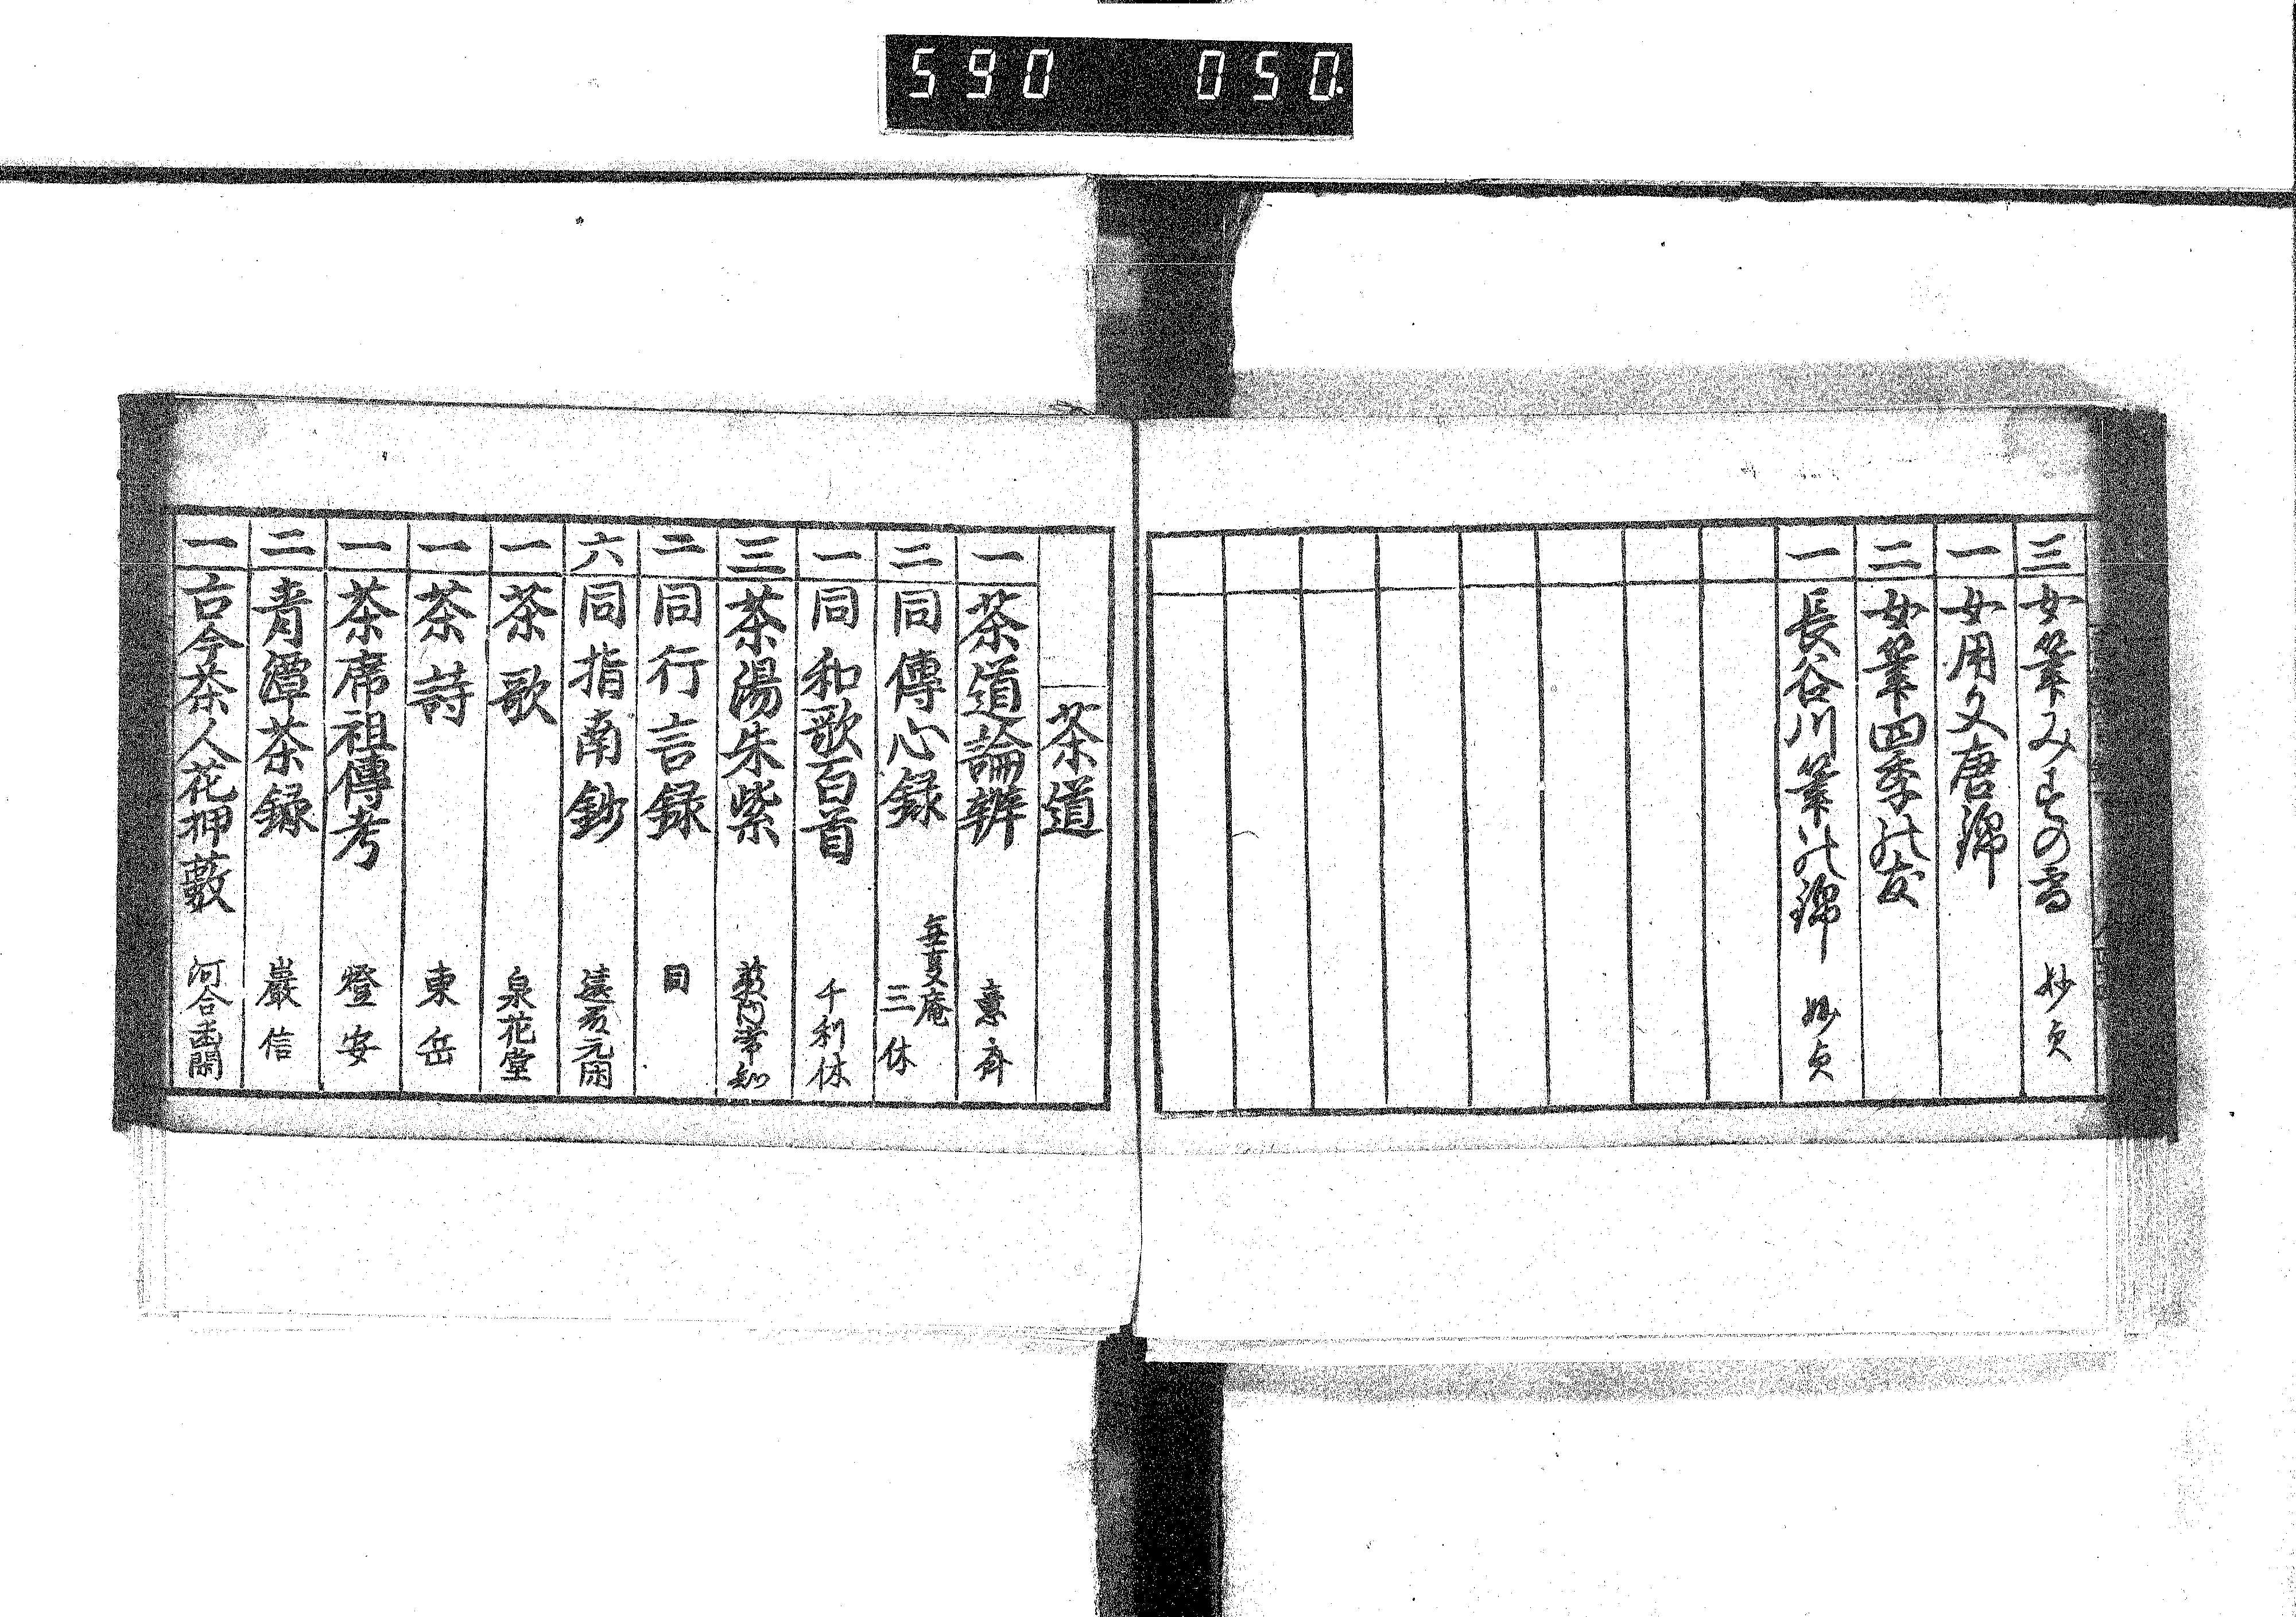 590 050.
三 女筆みとせの高 妙貞
一 女用文唐錦
二 女筆四季の友
一 長谷川筆の錦 妙貞
茶道
一 茶道論辨 意齋
二 同傳心録 無事庵 三休
一 同和歌百首 千利休
三 茶湯朱紫 常知
二 同行言録 同
六 同指南鈔 遠友元閑
一 茶歌 泉花堂
一 茶詩 東岳
一 茶席祖傳考 燈安
二 青潭茶録 巖信
一 古今茶人花押藪 河合函關